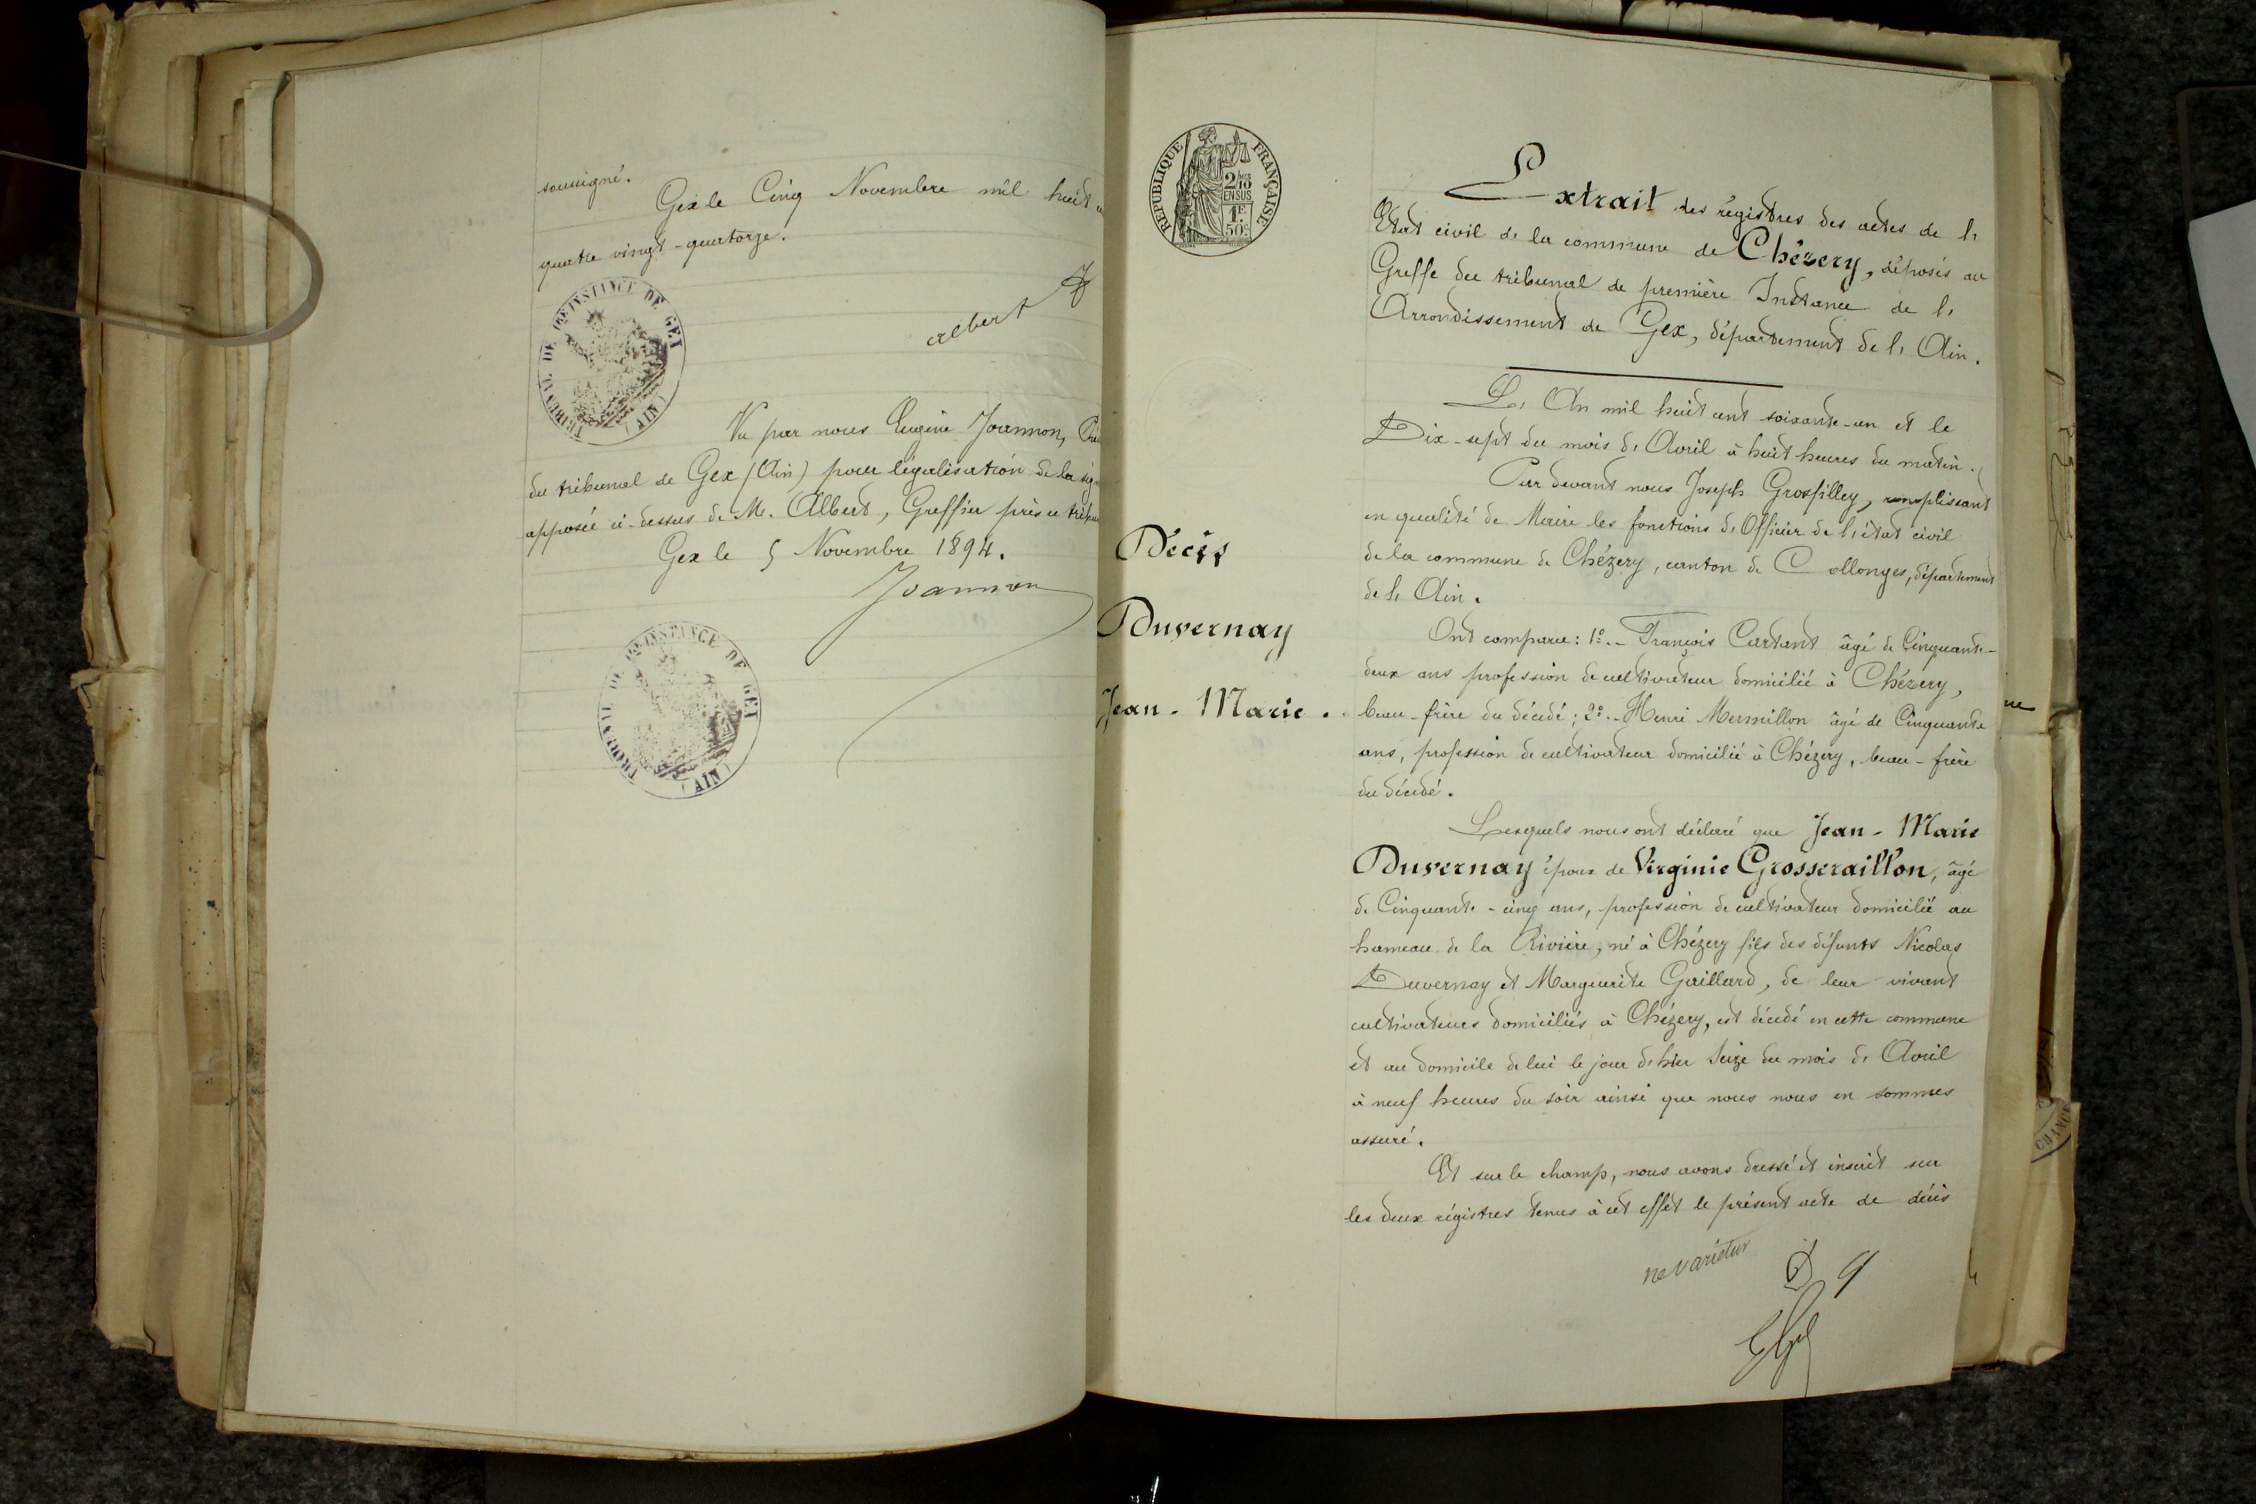 soussigné.
Gex le Cinq Novembre mil huit c
quatre vingt-quatorze.
TRIBUNAL DE 1RE INSTANCE DE GEX
(AIN)
albert
Vu par nous Eugène Joannon, Pré
du tribunal de Gex (Ain) pour légalisation de la sig-
apposée ci-dessus de Mr. Albert, Greffier près ce tribu
Gex le 5 Novembre 1894.
Joannon
TRIBUNAL DE 1RE INSTANCE DE GEX
(AIN)
RÉPUBLIQUE FRANÇAISE
2/10
EN SUS
1F
50C
Extrait des régistres des actes de l'
Etat civil de la commune de Chézery, déposés au
Greffe du tribunal de première Instance de l'
Arrondissement de Gex, département de l'Ain.
L'An mil huit cent soixante-un et le
Dix-sept du mois d'Avril à huit heures du matin.
Par devant nous Joseph Grosfilley, remplissant
en qualité de Maire les fonctions d'Officier de l'état civil
de la commune de Chézery, canton de Collonges, département
de l'Ain.
Décès
Duvernay
Jean-Marie.
Ont comparu: 1°.- François Cartant âgé de Cinquante-
deux ans profession de cultivateur domicilié à Chézery,
beau-frère du décédé; 2°.- Henri Mermillon âgé de Cinquante
ans, profession de cultivateur domicilié à Chézery, beau-frère
du décédé.
Lesquels nous ont déclaré que Jean-Marie
Duvernay époux de Virginie Grosseraillon, âgé
de Cinquante-cinq ans, profession de cultivateur domicilié au
hameau de la Rivière, né à Chézery fils des défunts Nicolas
Duvernay et Marguerite Gaillard, de leur vivant
cultivateurs domiciliés à Chézery, est décédé en cette commune
et au domicile de lui le jour d'hier Seize du mois d'Avril
à neuf heures du soir ainsi que nous nous en sommes
assuré.
Et sur le champ, nous avons dressé et inscrit sur
les deux régistres tenus à cet effet le présent acte de décès
ne varietur